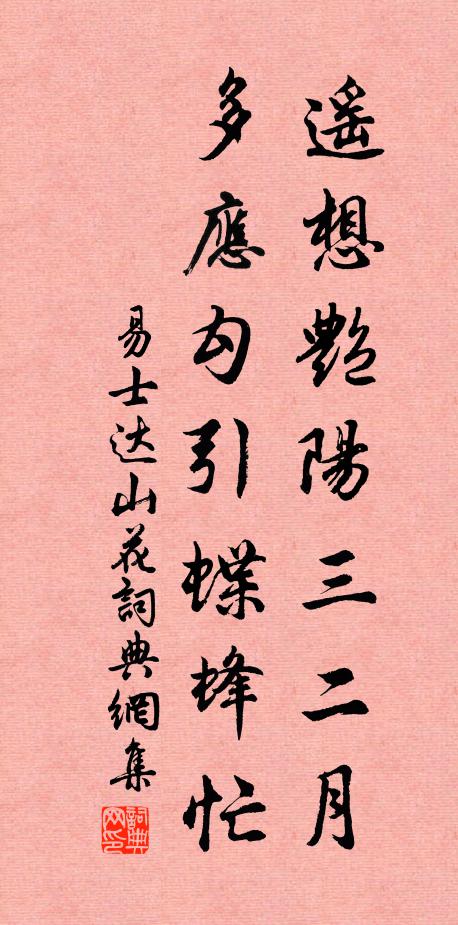 遥想艶陽三二月
多應勾引蝶蜂忙
易士达山花詞典網集
詞典网印